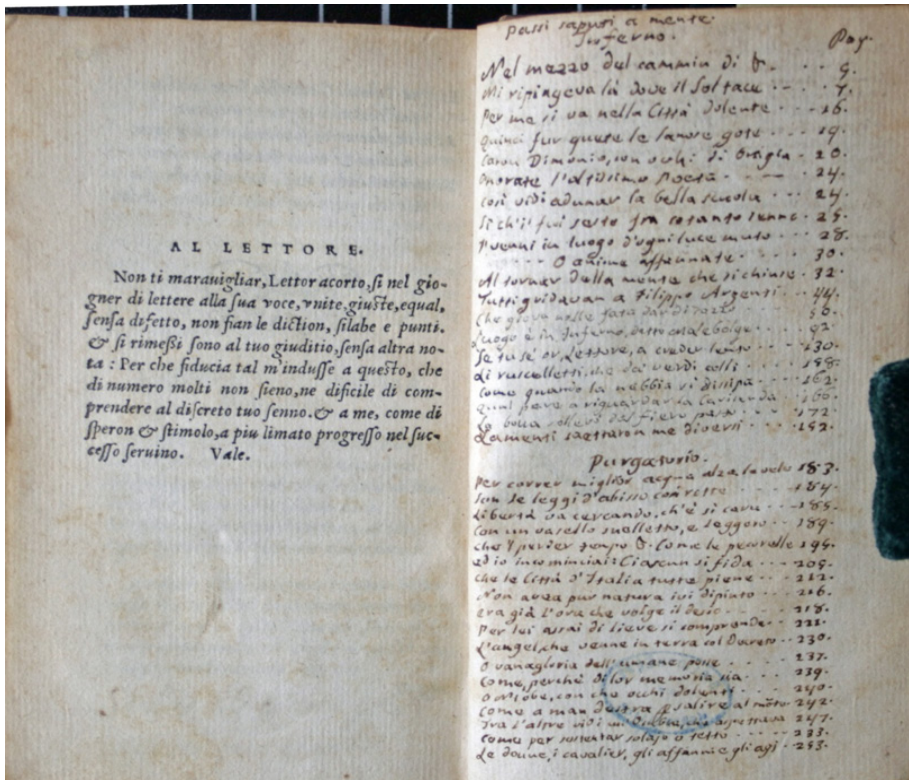 AL LETTORE.
Non ti marauigliar, Lettor acorto, ſi nel gio-
gner di lettere alla ſua voce, vnite, giuſte, equal,
ſenſa difetto, non ſian le diction, ſilabe e punti.
& ſi rimeßi ſono al tuo giuditio, ſenſa altra no-
ta : Per che fiducia tal m'induſſe a queſto, che
di numero molti non ſieno, ne difficile di com-
prendere al diſcreto tuo ſenno. & a me, come di
ſperon & ſtimolo, a piu limato progreſſo nel ſuc-
ceſſo ſeruino. Vale.
Passi saputi a mente.
Inferno. Pag.
Nel mezzo del cammin di &. - - 5.
Mi ripingeva là dove il Sol tace - - - 7.
Per me si va nella Città dolente - - - 16.
Quinci fur quete le lanose gote - - - 19.
Caron Dimonio, con occhi di bragia - 20.
Onorate l'altissimo Poeta - - - 24.
Così vidi adunar la bella scuola - - - 24.
Sì ch'i' fui sesto fra cotanto senno - 25.
I' venni in luogo d'ogni luce muto - - 28.
- - - O anime affannate - - - 30.
Al tornar della mente che si chiuse - 32.
Tutti gridavan a Filippo Argenti - - 44.
Che giova nelle fata dar di cozzo - - 50.
Luogo è in Inferno, detto malebolge - - 92.
Se tu se' or, Lettore, a creder lento - - 130.
Li ruscelletti, che da' verdi colli - - 158.
Come quando la nebbia si dissipa - - 162.
Qual pare a riguardar la Carisenda - - 160.
La bocca sollevò dal fiero pasto - - 172.
Lamenti saettaron me diversi - - 152.
Purgatorio.
Per correr miglior acqua alza le vele 183.
Son le leggi d'abisso così rotte - - - 184.
Libertà va cercando, ch'è sì cara - - 185.
Con un vasello snelletto, e leggero - - 189.
che 'l primer tempo &. Come le pecorelle 194.
ed io incominciai: Ciascun si fida - - 205.
Che le Città d'Italia tutte piene - - 212.
Non avea pur natura ivi dipinto - - 216.
Era già l'ora che volge il desio - - 218.
Per lei assai di lieve si comprende - - 221.
L'angel, che venne in terra col Decreto - - 230.
O vanagloria dell'umane posse - - - 237.
Come, perchè di lor memoria sia - - - 239.
O Niobe, con che occhi dolenti - - - 240.
Come a man destra p salire al mõte - 242.
Tra l'altre vidi un' Ombra, che aspettava 247.
Come per sostentar solajo o tetto - - 233.
Le donne, i cavalier, gli affanni e gli agi - 253.